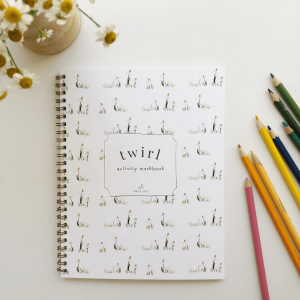 twirl
activity workbook